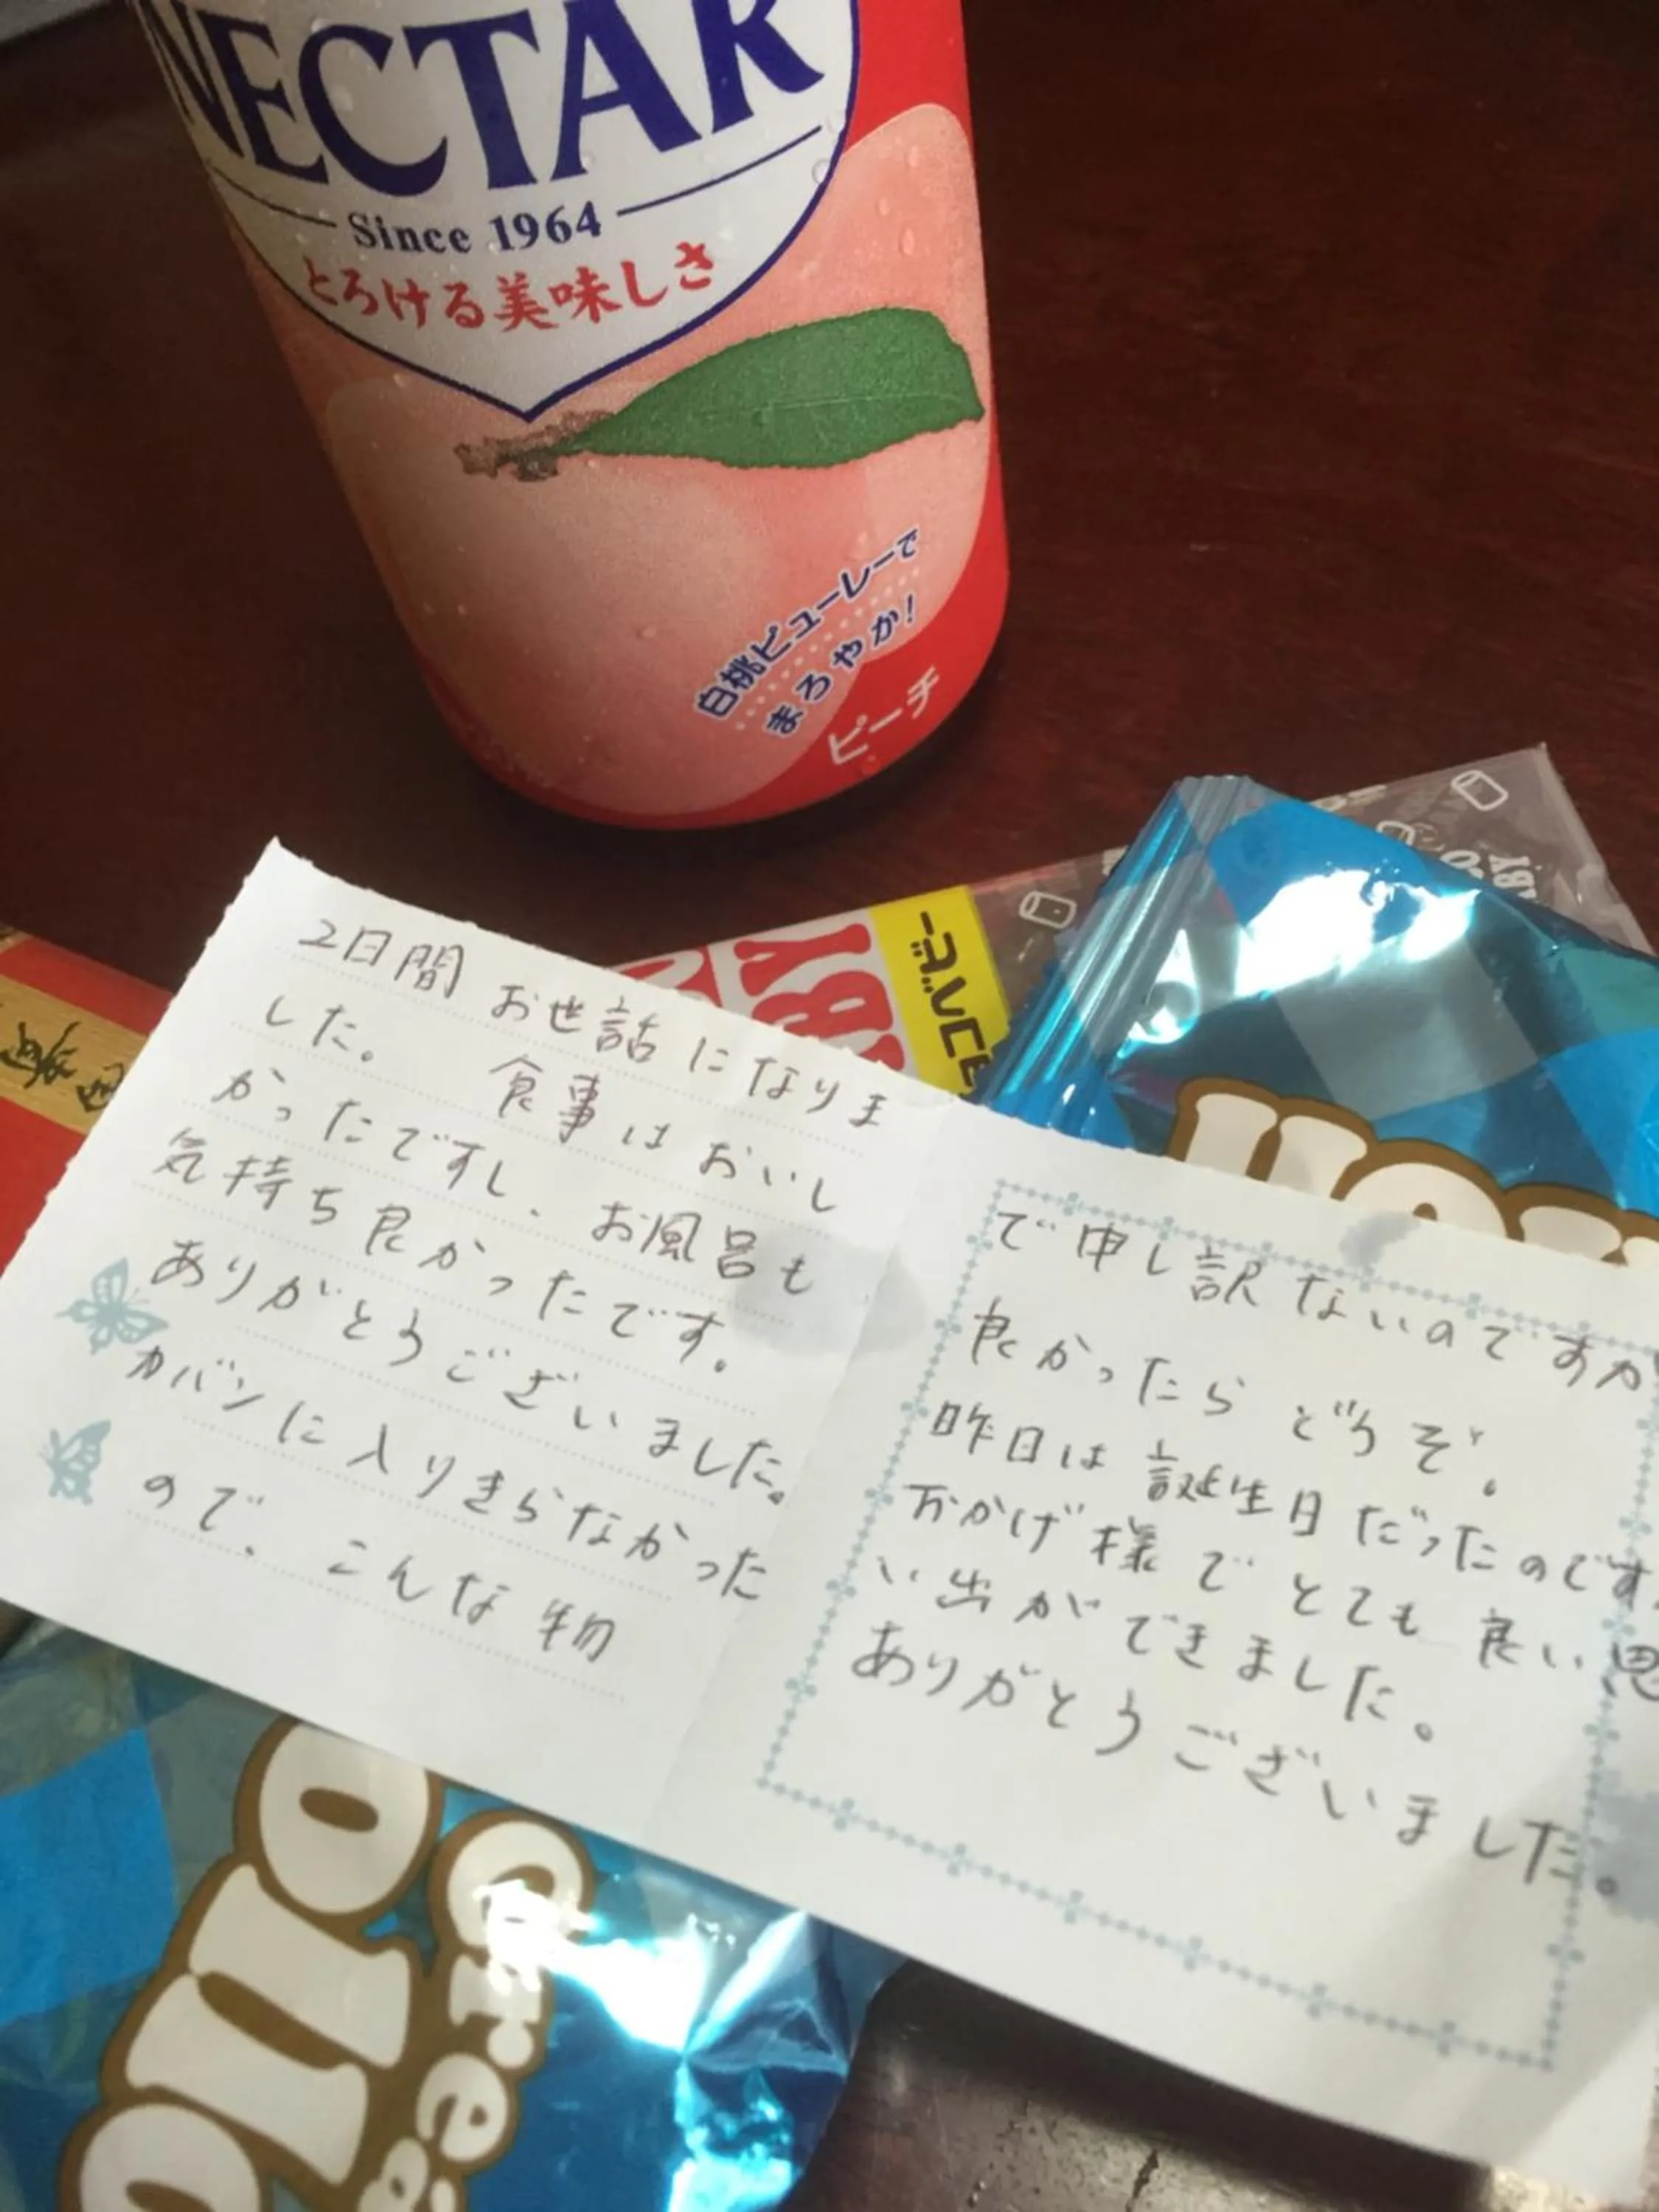 NECTAR
Since 1964
とろける美味しさ
白桃ピューレーで
まろやか!
ピーチ
2日間 お世話になりま
した。 食事はおいし
かったですし、お風呂も
気持ち良かったです。
ありがとうございました。
カバンに入りきらなかった
ので、こんな物
で申し訳ないのですが
良かったら どうぞ。
昨日は誕生日だったのです。
おかげ様で とても 良い思
い出ができました。
ありがとうございました。